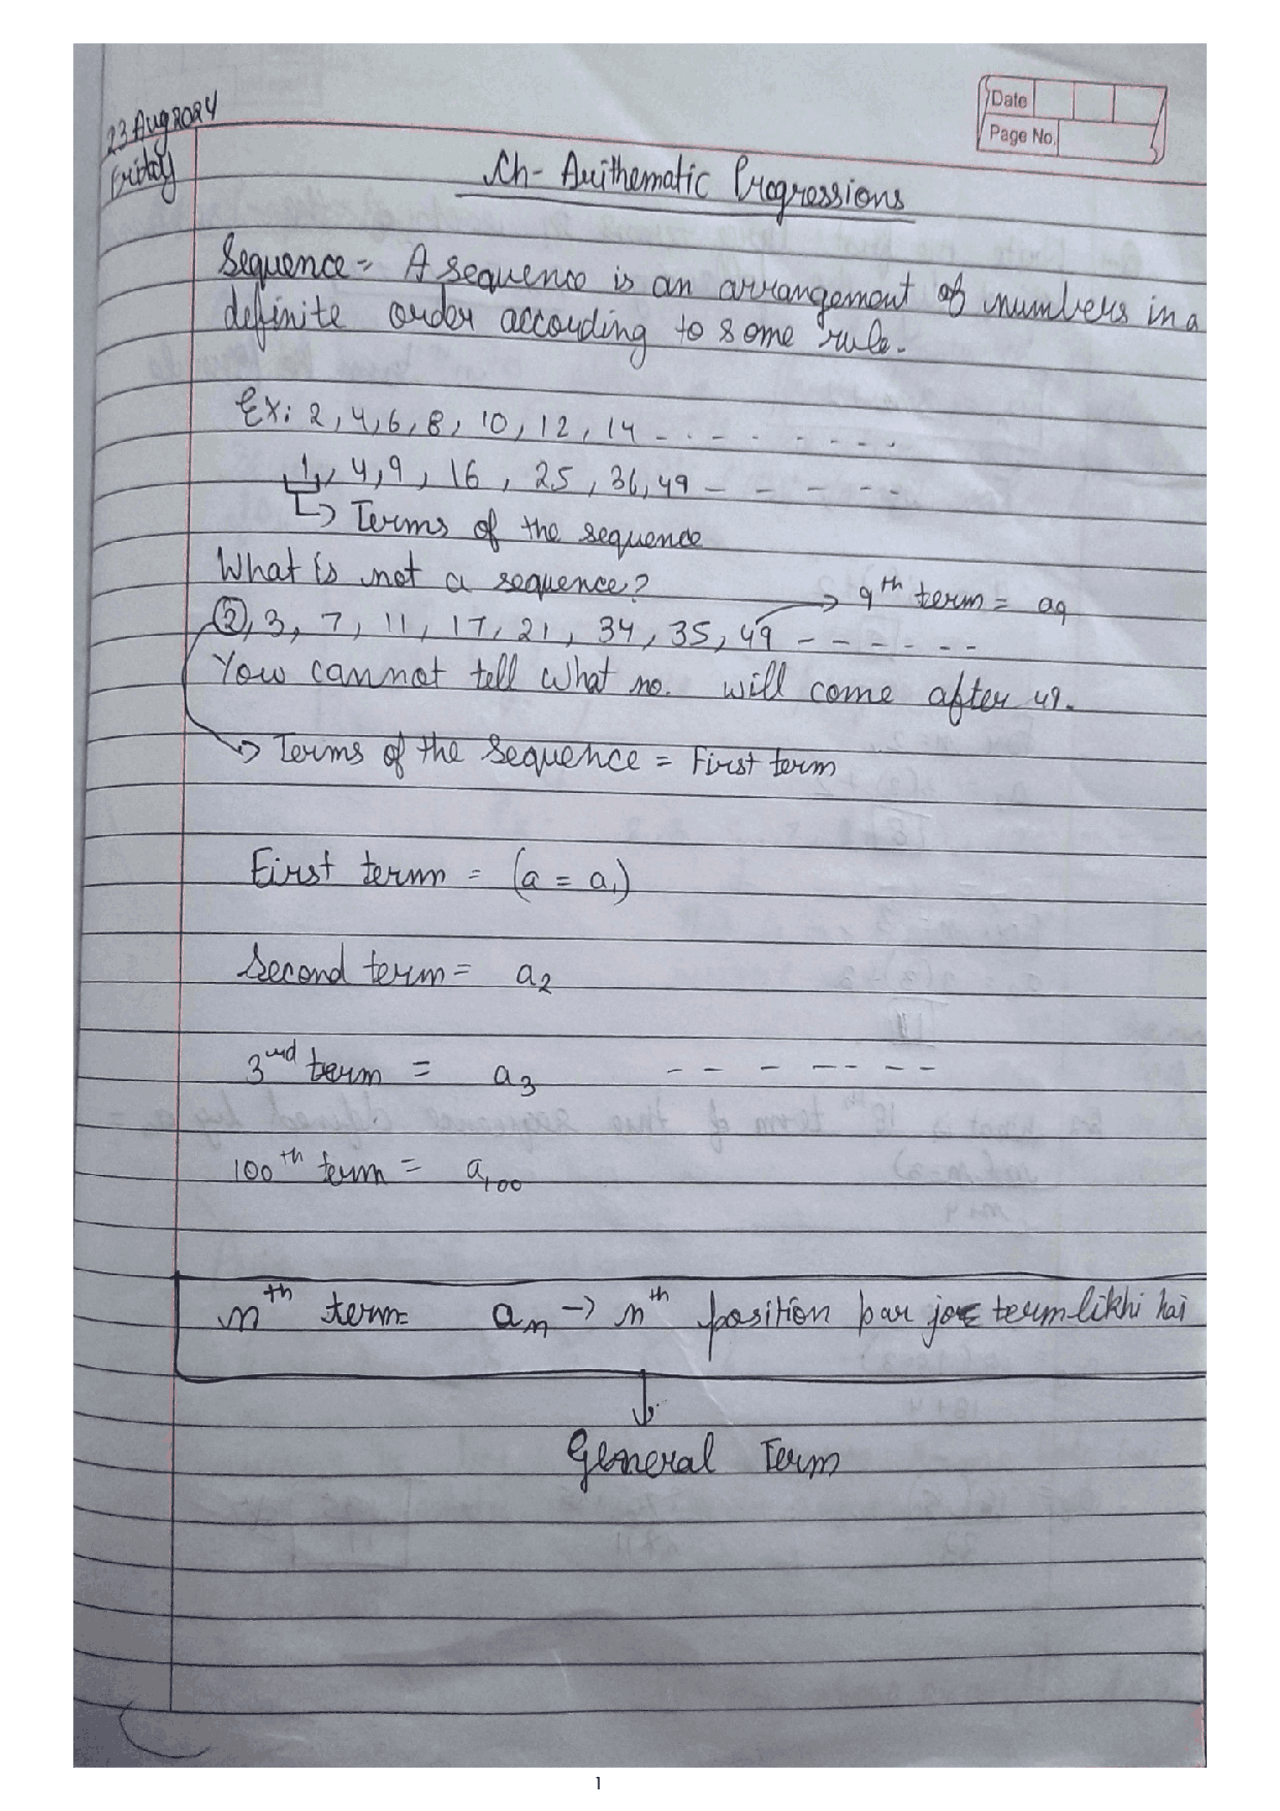 23 Aug 2024
Friday
Date
Page No.
Ch- Arithematic Progressions
Sequence = A sequence is an arrangement of numbers in a
definite order according to some rule.
Ex: 2, 4, 6, 8, 10, 12, 14 - - - - - - - -
1, 4, 9, 16, 25, 36, 49 - - - - - -
↳ Terms of the sequence
What is not a sequence?
→ 9th term = a₉
②, 3, 7, 11, 17, 21, 34, 35, 49 - - - - - -
You cannot tell what no. will come after 49.
→ Terms of the sequence = First term
First term = (a = a₁)
Second term = a₂
3rd term = a₃ - - - - - - -
100th term = a₁₀₀
nth term = aₙ → nth position par jo term likhi hai
↓
General Term
1